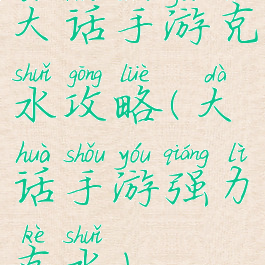 大话手游克
shuǐ gōng lüè dà
水攻略(大
huà shǒu yóu qiáng lì
话手游强力
kè shuǐ
克水)